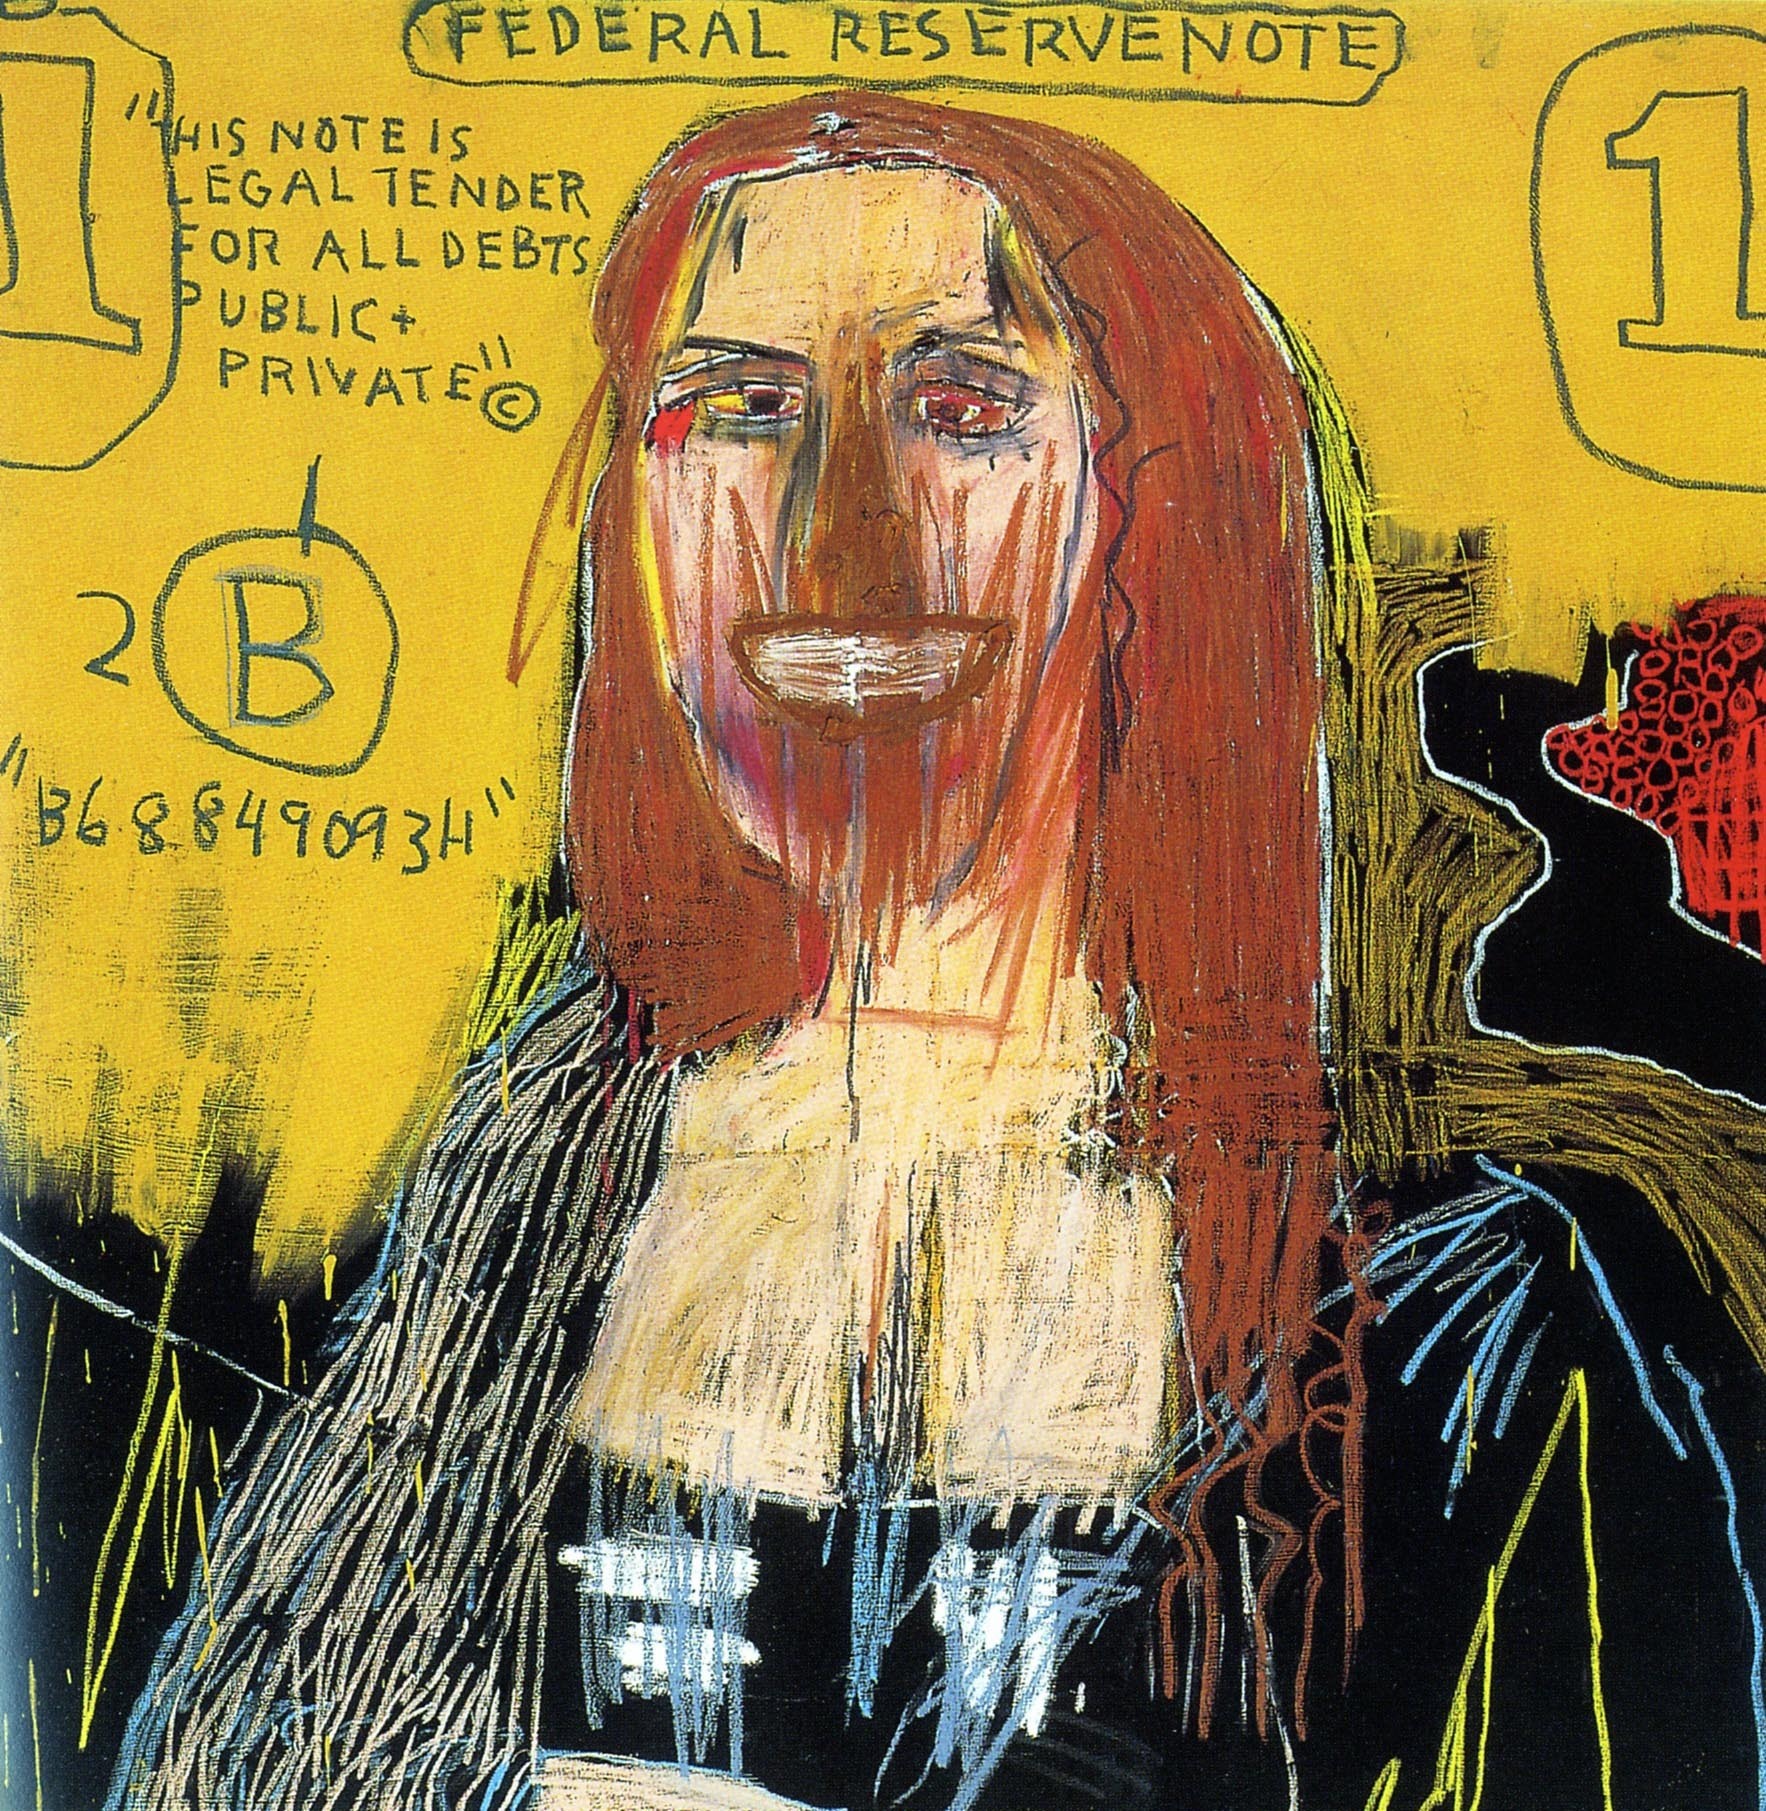 FEDERAL RESERVE NOTE
1
1
"THIS NOTE IS
LEGAL TENDER
FOR ALL DEBTS
PUBLIC +
PRIVATE" ©
1
2 B
"B68849093H"